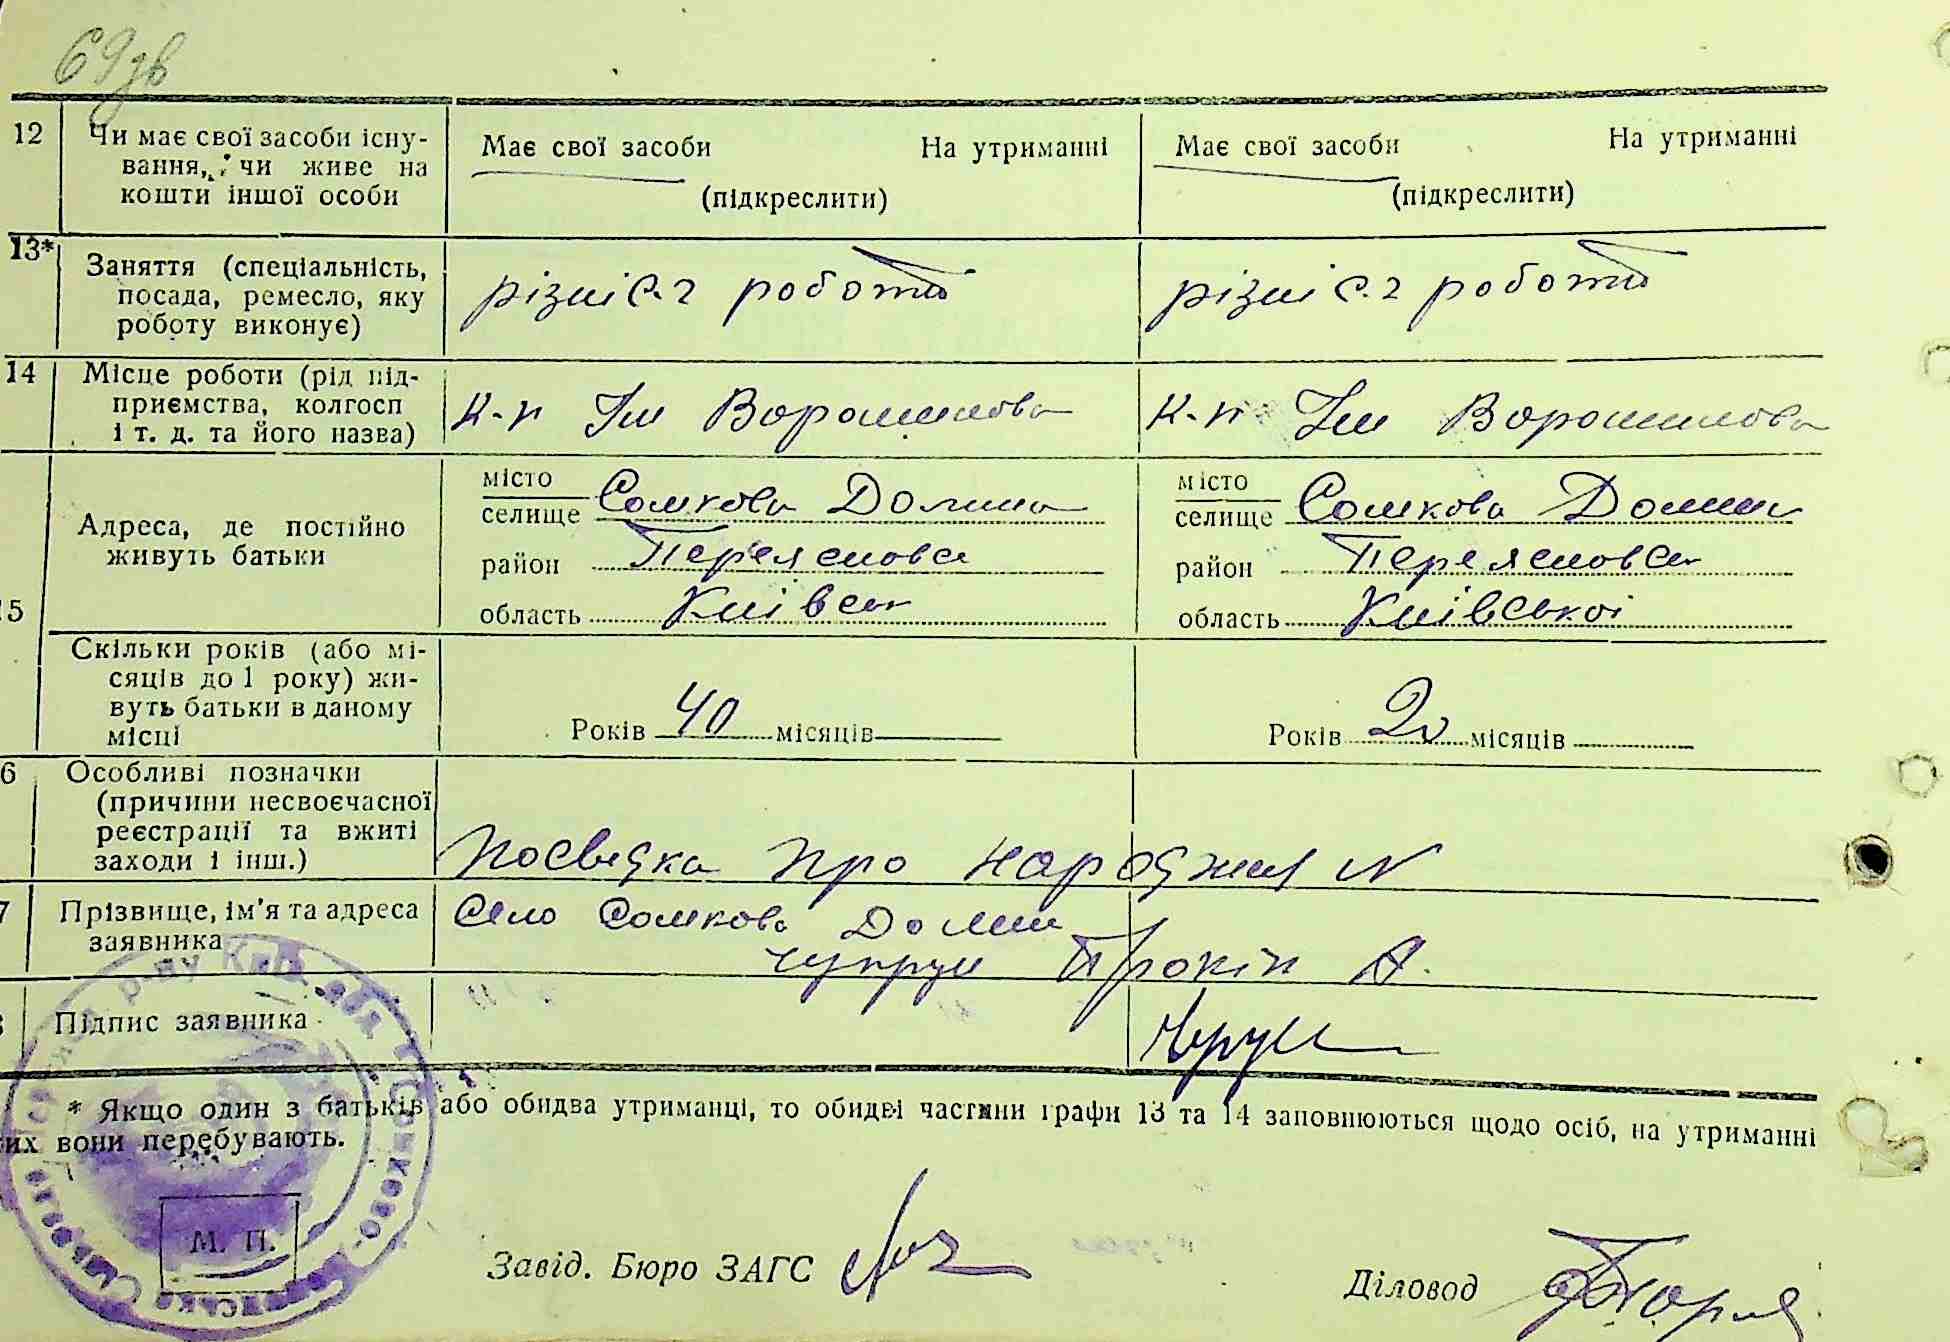 69зв
12 Чи має свої засоби існу-
вання, чи живе на
кошти іншої особи
Має свої засоби На утриманні
(підкреслити)
Має свої засоби На утриманні
(підкреслити)
13* Заняття (спеціальність,
посада, ремесло, яку
роботу виконує)
різні с.г роботи
різні с.г роботи
14 Місце роботи (рід під-
приємства, колгосп
і т. д. та його назва)
к-п Ім Ворошилова
к-п Ім Ворошилова
5 Адреса, де постійно
живуть батьки
місто
селище Сомкова Долина
район
область Київськ
місто
селище Сомкова Долин
район
область Київської
Скільки років (або мі-
сяців до 1 року) жи-
вуть батьки в даному
місці
Років 40 місяців
Років 20 місяців
6 Особливі позначки
(причини несвоєчасної
реєстрації та вжиті
заходи і інш.)
посвідка про народжия N
7 Прізвище, ім'я та адреса
заявника
Село Сомкова Долин
Чупрун Прокіп А.
Підпис заявника
* Якщо один з батьків або обидва утриманці, то обидві частини графи 13 та 14 заповнюються щодо осіб, на утриманні
их вони перебувають.
М. П.
Завід. Бюро ЗАГС
Діловод